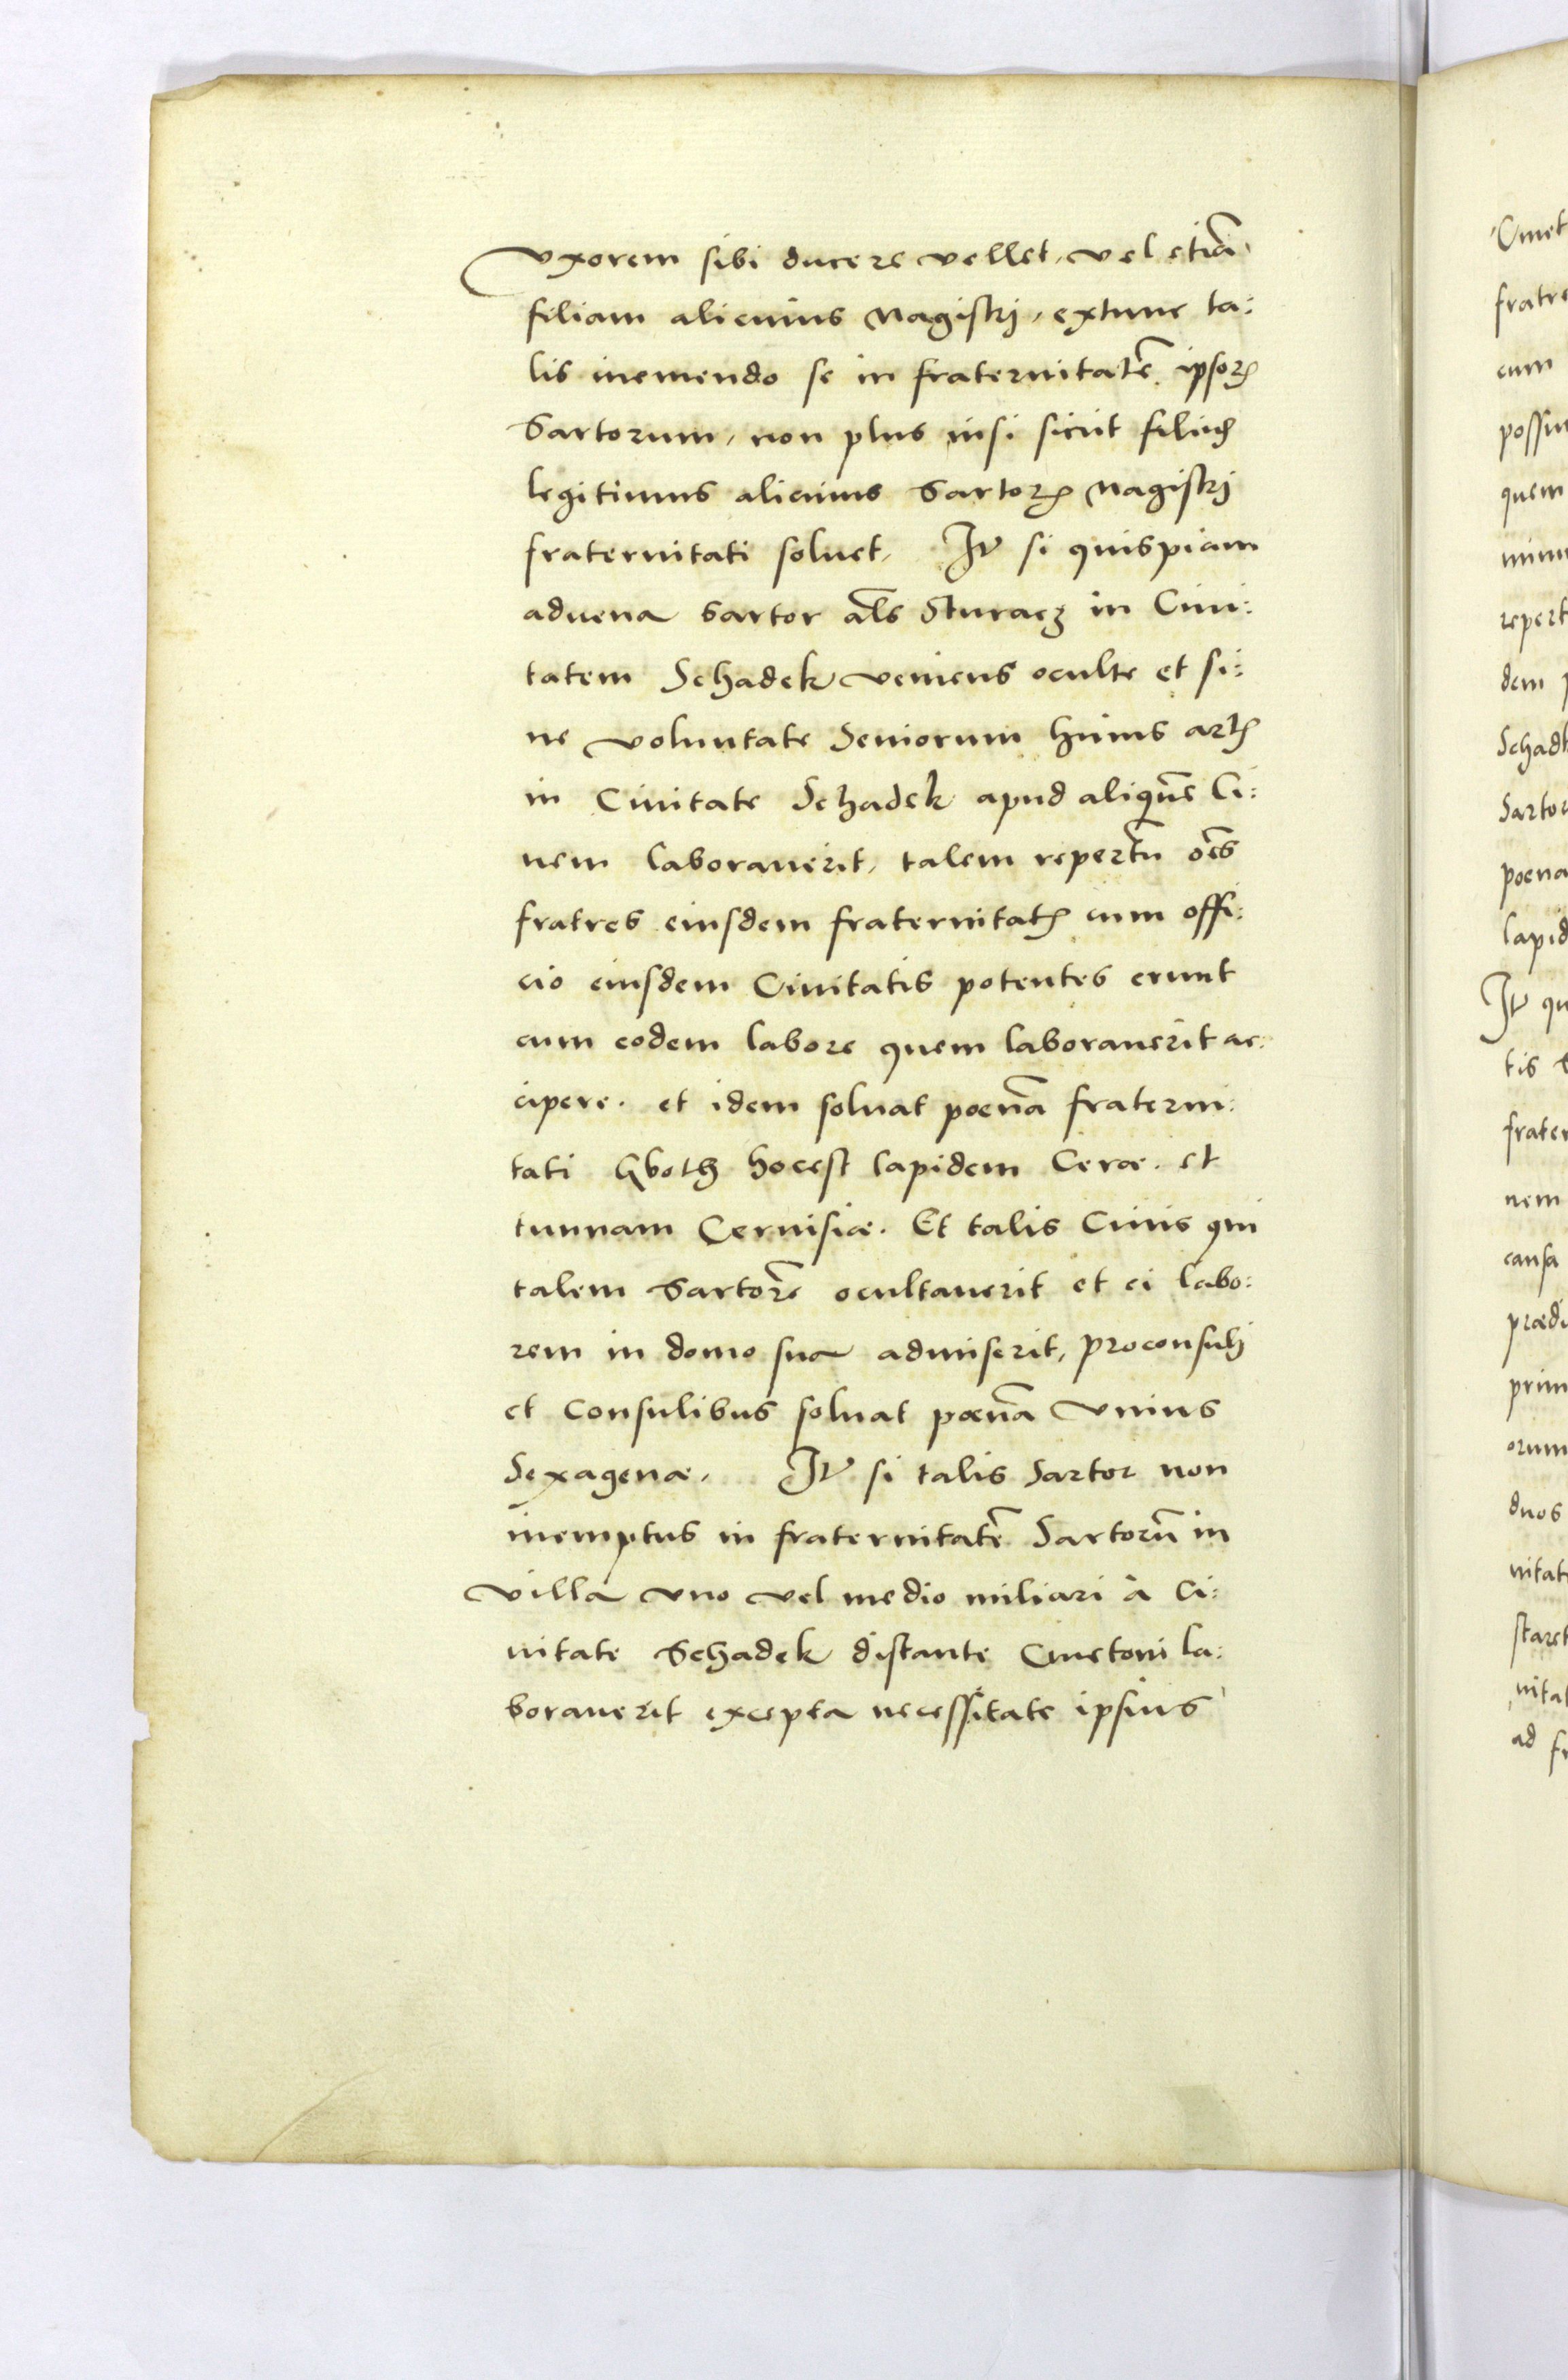 Vxorem sibi ducere vellet, vel etiā
filiam alicuius Magistri, extunc ta:
lis inemendo se in fraternitatē ipsoꝝ
Sartorum, non plus nisi sicut filius
legitimus alicuius Sartoꝝ Magistri
fraternitati soluet. Itē si quispiam
aduena Sartor al̄s Sturacz in Ciui:
tatem Schadek veniens oculte et si:
ne voluntate Seniorum huius artꝭ
in Ciuitate Schadek apud aliquē Ci:
uem laborauerit, talem repertū oēs
fratres eiusdem fraternitatꝭ cum offi:
cio eiusdem Ciuitatis potentes erunt
cum eodem labore quem laborauerit ac:
cipere. et idem soluat poenā fraterni:
tati hoc est lapidem Cerae. et
tunnam Ceruisiae. Et talis Ciuis qui
talem Sartorē ocultauerit et ei labo:
rem in domo sua admiserit, proconsuli
et Consulibus soluat poenā Vnius
Sexagenae. Itē si talis Sartor non
inemptus in fraternitatē Sartorū in
Villa vno vel medio miliari à Ci:
uitate Schadek distante Cmetoni la:
borauerit excepta necessitate ipsius
Cmet
fratre
cum
possu
quem
repert
dem
Schad
Sartor
poena
lapid
Itē qu
tis
frater
nem
causa
praedi
prim
orum
duos
uitat
staret
uitat
ad fr